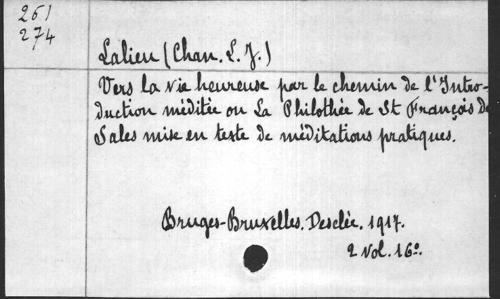 261
274
Lalieu (Chan. L. J.)
Vers la vie heureuse par le chemin de l'Intro-
duction méditée ou La Philothée de St François de
Sales mise en texte de méditations pratiques.
Bruges-Bruxelles. Desclée. 1917.
2 vol. 16º.